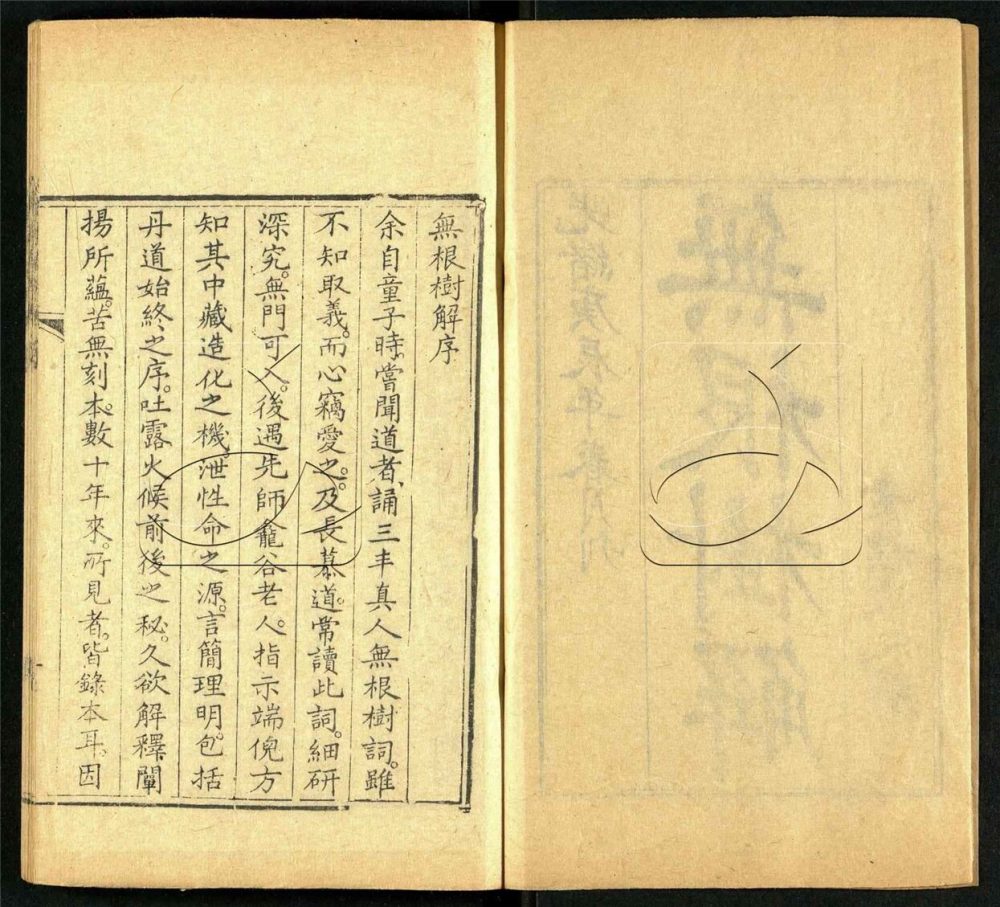 無根樹解序
余自童子時。嘗聞道者、誦三丰真人無根樹詞。雖
不知取義。而心竊愛之。及長慕道。常讀此詞。細研
深究。無門可入。後遇先師龕谷老人。指示端倪方
知其中藏造化之機。泄性命之源。言簡理明。包括
丹道始終之序。吐露火候前後之秘。久欲解釋闡
揚所蘊。苦無刻本。數十年來。所見者。皆錄本耳。因